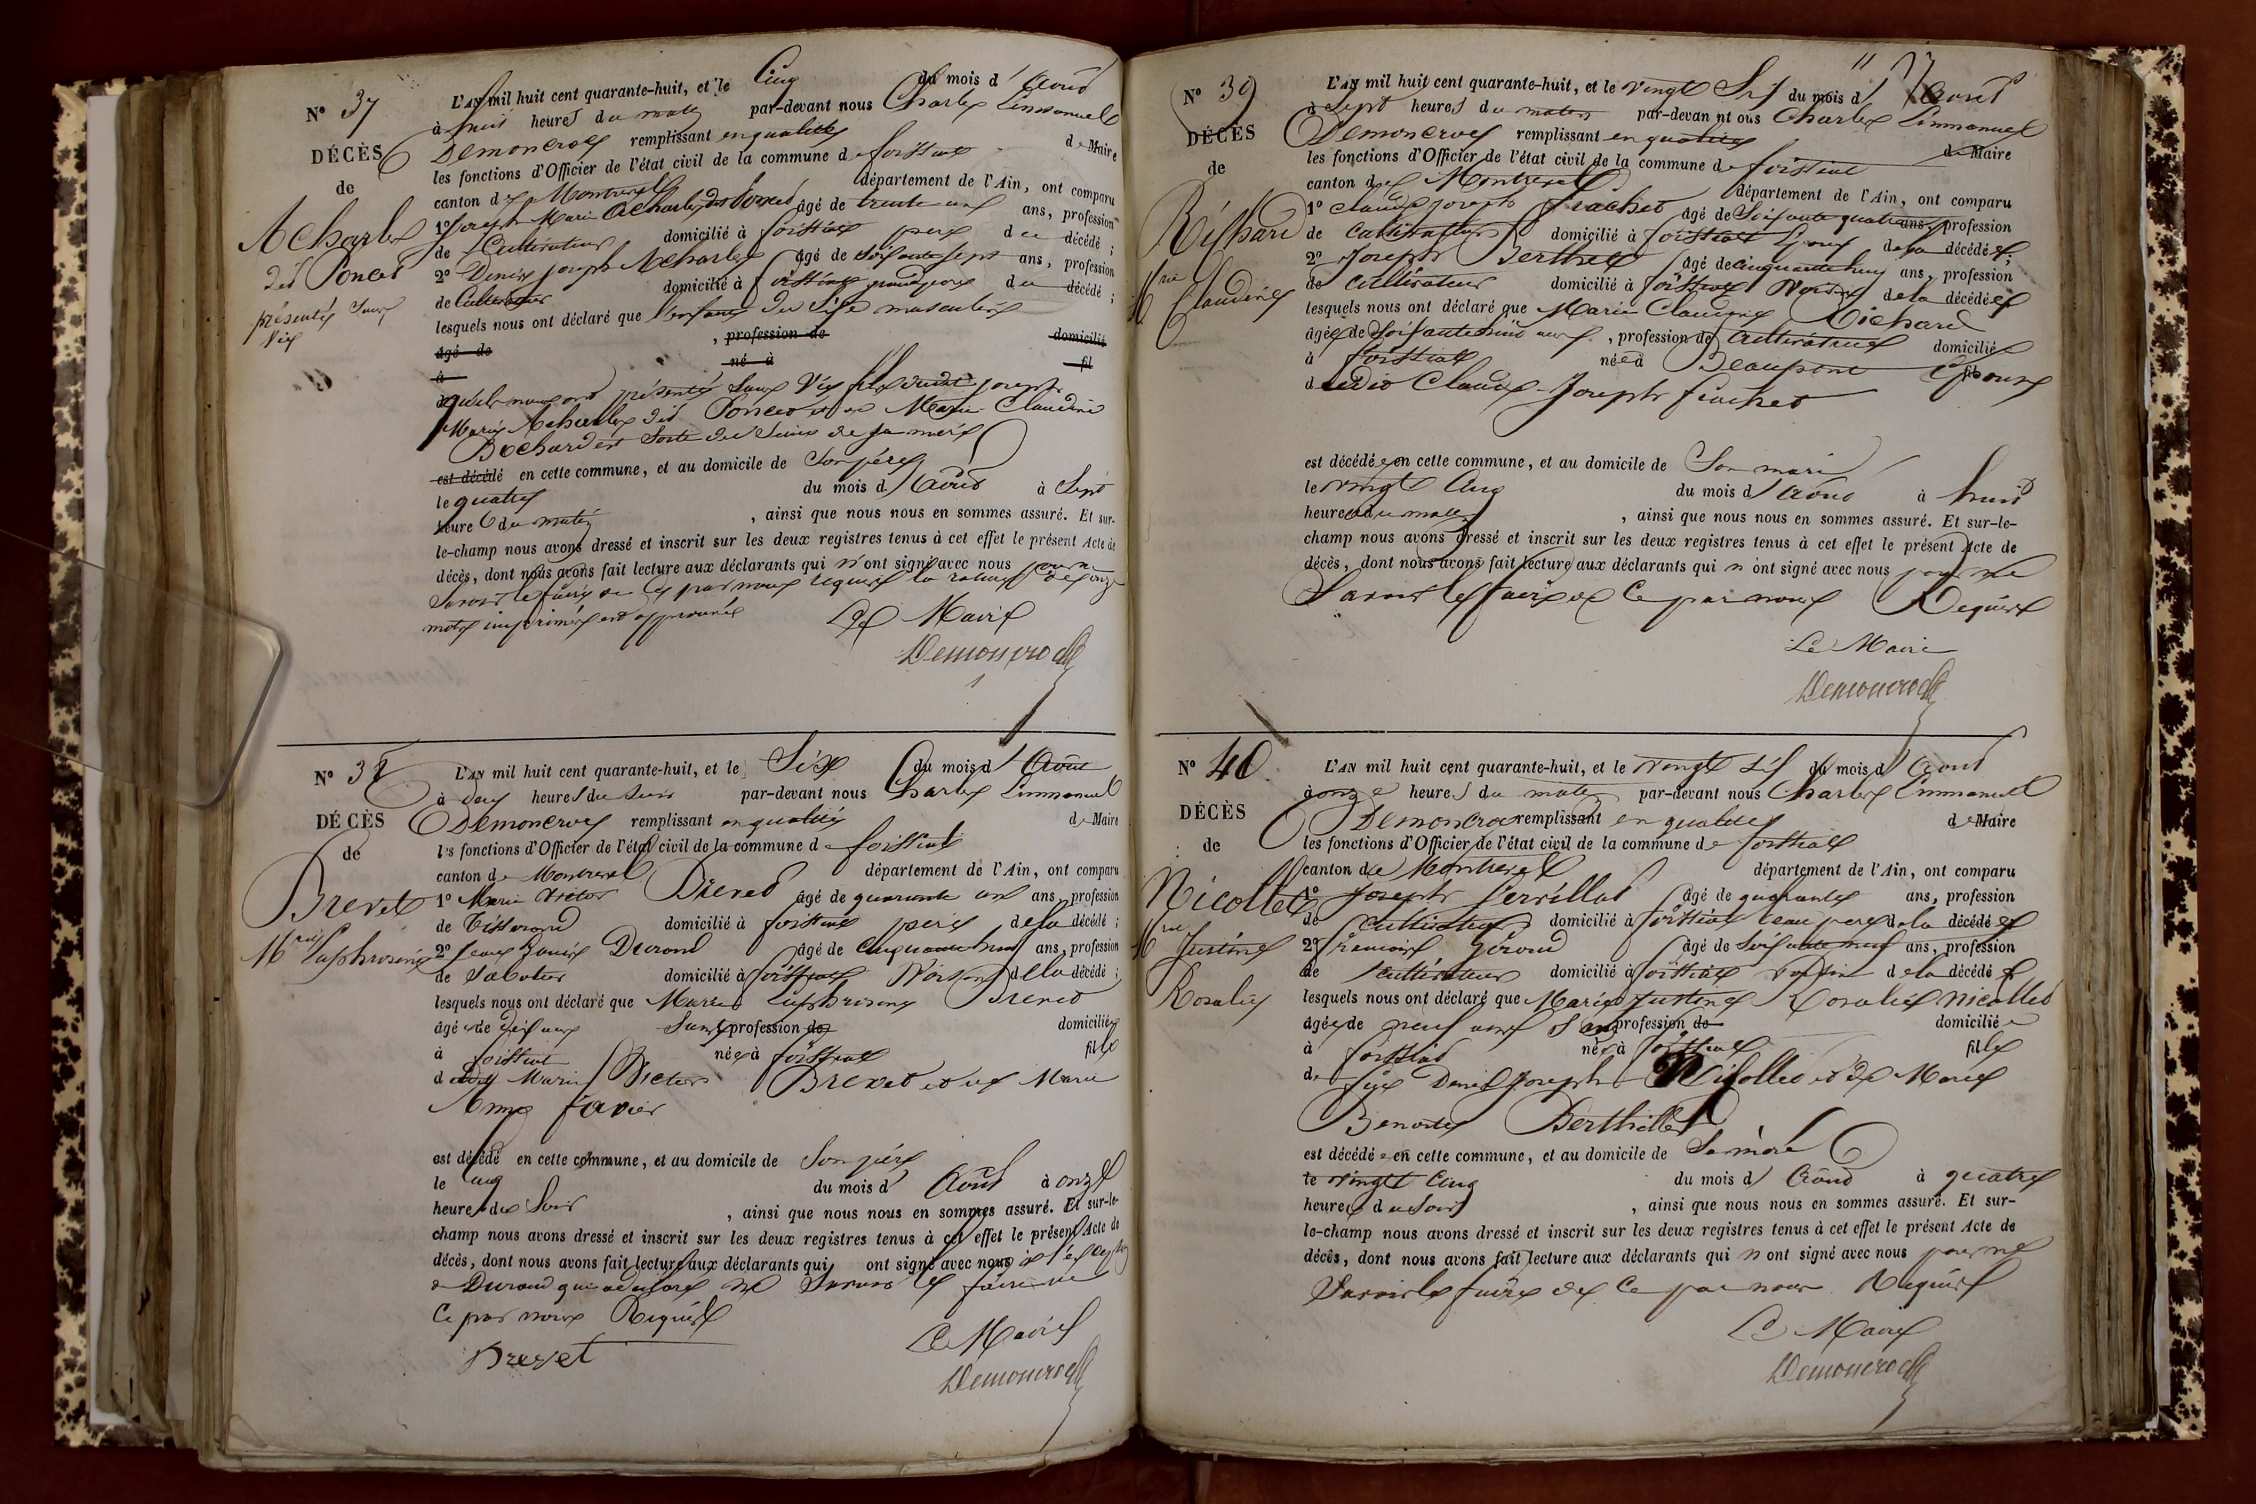 N° 37
DÉCÈS
de
Acharles
dit Poncet
présenté sans
vie
L'AN mil huit cent quarante-huit, et le Cinq du mois d'Août
à huit heures du matin par-devant nous Charles Emmanuel
Demoncroc remplissant en qualité de Maire
les fonctions d'Officier de l'état civil de la commune de foissiat
canton de Montrevel département de l'Ain, ont comparu
1° Joseph Marie Acharles dit Poncet âgé de trente un ans, profession
de Cultivateur domicilié à foissiat père du décédé ;
2° Denis joseph Acharles âgé de soixante sept ans, profession
de Cultivateur domicilié à foissiat grand père du décédé ;
lesquels nous ont déclaré que l'enfant du sexe masculin
âgé de , profession de domicilié
à né à fil
quils nous ont présenté sans vie fils dudit joseph
Marie Acharles dit Poncet et de Marie Claudine
Bochard est sorti du sein de sa mère
est décédé en cette commune, et au domicile de Son père
le quatre du mois d'Août à Sept
heure du matin , ainsi que nous nous en sommes assuré. Et sur-
le-champ nous avons dressé et inscrit sur les deux registres tenus à cet effet le présent Acte de
décès, dont nous avons fait lecture aux déclarants qui n'ont signé avec nous pour ne
Savoir le faire de ce par nous requis la rature de onze
mots imprimés est approuvée
Le Maire
Demoncroc
N° 38
DÉCÈS
de
Brevet
Mrie Euphrosine
L'AN mil huit cent quarante-huit, et le Six du mois d'Août
à deux heures du soir par-devant nous Charles Emmanuel
Demoncroc remplissant en qualité de Maire
les fonctions d'Officier de l'état civil de la commune de foissiat
canton de Montrevel département de l'Ain, ont comparu
1° Marie Victor Brevet âgé de quarante un ans, profession
de Tisserand domicilié à foissiat père de la décédé ;
2° Jean Durand âgé de Cinquante huit ans, profession
de Sabotier domicilié à foissiat Voisin de la décédé ;
lesquels nous ont déclaré que Marie Euphrosine Brevet
âgé de Dix ans Sans profession de domiciliée
à foissiat née à foissiat fille
dudit Marie Victor Brevet et de Marie
Anne favier
est décédé en cette commune, et au domicile de Son père
le cinq du mois d'Août à onze
heures du Soir , ainsi que nous nous en sommes assuré. Et sur-le-
champ nous avons dressé et inscrit sur les deux registres tenus à cet effet le présent Acte de
décès, dont nous avons fait lecture aux déclarants qui ont signé avec nous
Durand qui a déclaré ne Savoir le faire de
Ce par nous Requis
Brevet
Le Maire
Demoncroc
N° 39
DÉCÈS
de
Richard
Mrie
Claudine
L'AN mil huit cent quarante-huit, et le vingt Six du mois d'Août
à Sept heures du matin par-devan nt ous Charles Emmanuel
Demoncroc remplissant en qualité de Maire
les fonctions d'Officier de l'état civil de la commune de foissiat
canton de Montrevel département de l'Ain, ont comparu
1° Claude joseph frachet âgé de Soixante quatre ans, profession
de Cultivateur domicilié à foissiat Epoux de la décédée ;
2° Joseph Berthet âgé de cinquante huit ans, profession
de Cultivateur domicilié à foissiat Voisin de la décédée
lesquels nous ont déclaré que Marie Claudine Richard
âgée de Soixante huit ans , profession de Cultivatrice domiciliée
à foissiat née à Beaupont Epouse
dudit Claude Joseph frachet
est décédée en cette commune, et au domicile de Son mari
le vingt Cinq du mois d'Août à huit
heures du matin , ainsi que nous nous en sommes assuré. Et sur-le-
champ nous avons dressé et inscrit sur les deux registres tenus à cet effet le présent Acte de
décès, dont nous avons fait lecture aux déclarants qui n'ont signé avec nous pour ne
Savoir le faire de Ce par nous Requis
Le Maire
Demoncroc
N° 40
DÉCÈS
de
Nicollet
Mrie Justine
Rosalie
L'AN mil huit cent quarante-huit, et le vingt six du mois d'Août
à onze heures du matin par-devant nous Charles Emmanuel
Demoncroc remplissant en qualité de Maire
les fonctions d'Officier de l'état civil de la commune de foissiat
canton de Montrevel département de l'Ain, ont comparu
1° Joseph Perrillat âgé de quarante ans, profession
de Cultivateur domicilié à foissiat beau père de la décédée
2° françois Géraud âgé de Soixante neuf ans, profession
de Cultivateur domicilié à foissiat voisin de la décédée
lesquels nous ont déclaré que Marie Justine Rosalie Nicollet
âgée de neuf ans Sans profession de domiciliée
à foissiat née à foissiat fille
de feu Denis Joseph Nicollet et de Marie
Benoite Berthillet
est décédée en cette commune, et au domicile de Sa mère
le vingt Cinq du mois d'Août à quatre
heures du Soir , ainsi que nous nous en sommes assuré. Et sur-
le-champ nous avons dressé et inscrit sur les deux registres tenus à cet effet le présent Acte de
décès, dont nous avons fait lecture aux déclarants qui n'ont signé avec nous pour ne
Savoir le faire de Ce par nous Requis
Le Maire
Demoncroc